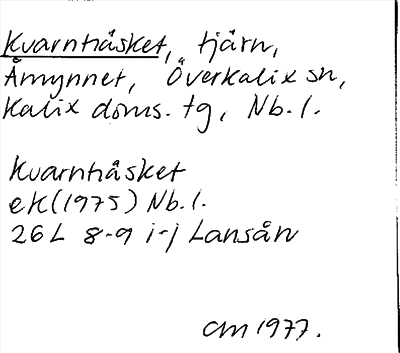 Kvarnhåsket, tjärn,
Åmynnet, Överkalix sn,
Kalix doms. tg, Nb. l.
Kvarnhåsket
ek (1975) Nb. l.
26L 8-9 i-j Lansån
CM 1977.